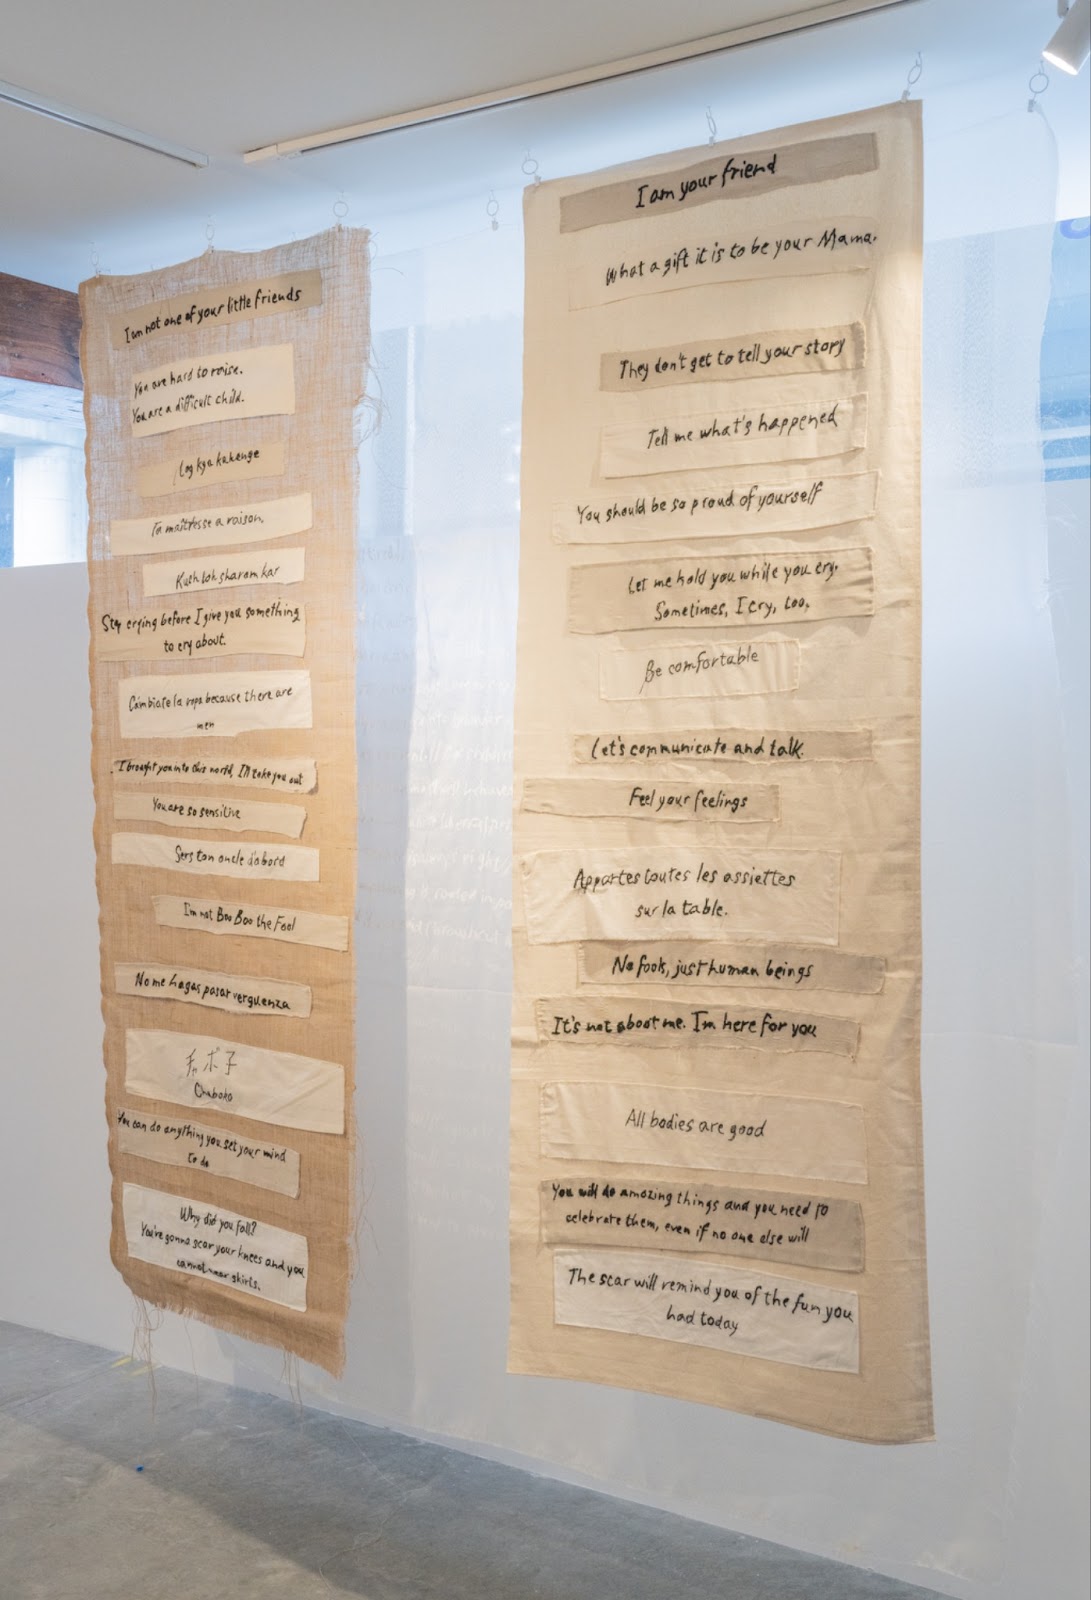 I am not one of your little friends
You are hard to raise.
You are a difficult child.
Log kya kahenge
Ta maîtresse a raison.
Kuch toh sharam kar
Stop crying before I give you something
to cry about.
Cámbiate la ropa because there are
men
I brought you into this world, I'll take you out
You are so sensitive
Sers ton oncle d'abord
I'm not Boo Boo the Fool
No me hagas pasar verguenza
チャボ子
Chaboko
You can do anything you set your mind
to do
Why did you fall?
You're gonna scar your knees and you
cannot wear skirts.
I am your friend
What a gift it is to be your Mama.
They don't get to tell your story
Tell me what's happened
You should be so proud of yourself
Let me hold you while you cry.
Sometimes, I cry, too.
Be comfortable
Let's communicate and talk.
Feel your feelings
Apportes toutes les assiettes
sur la table.
No fools, just human beings
It's not about me. I'm here for you
All bodies are good
You will do amazing things and you need to
celebrate them, even if no one else will
The scar will remind you of the fun you
had today